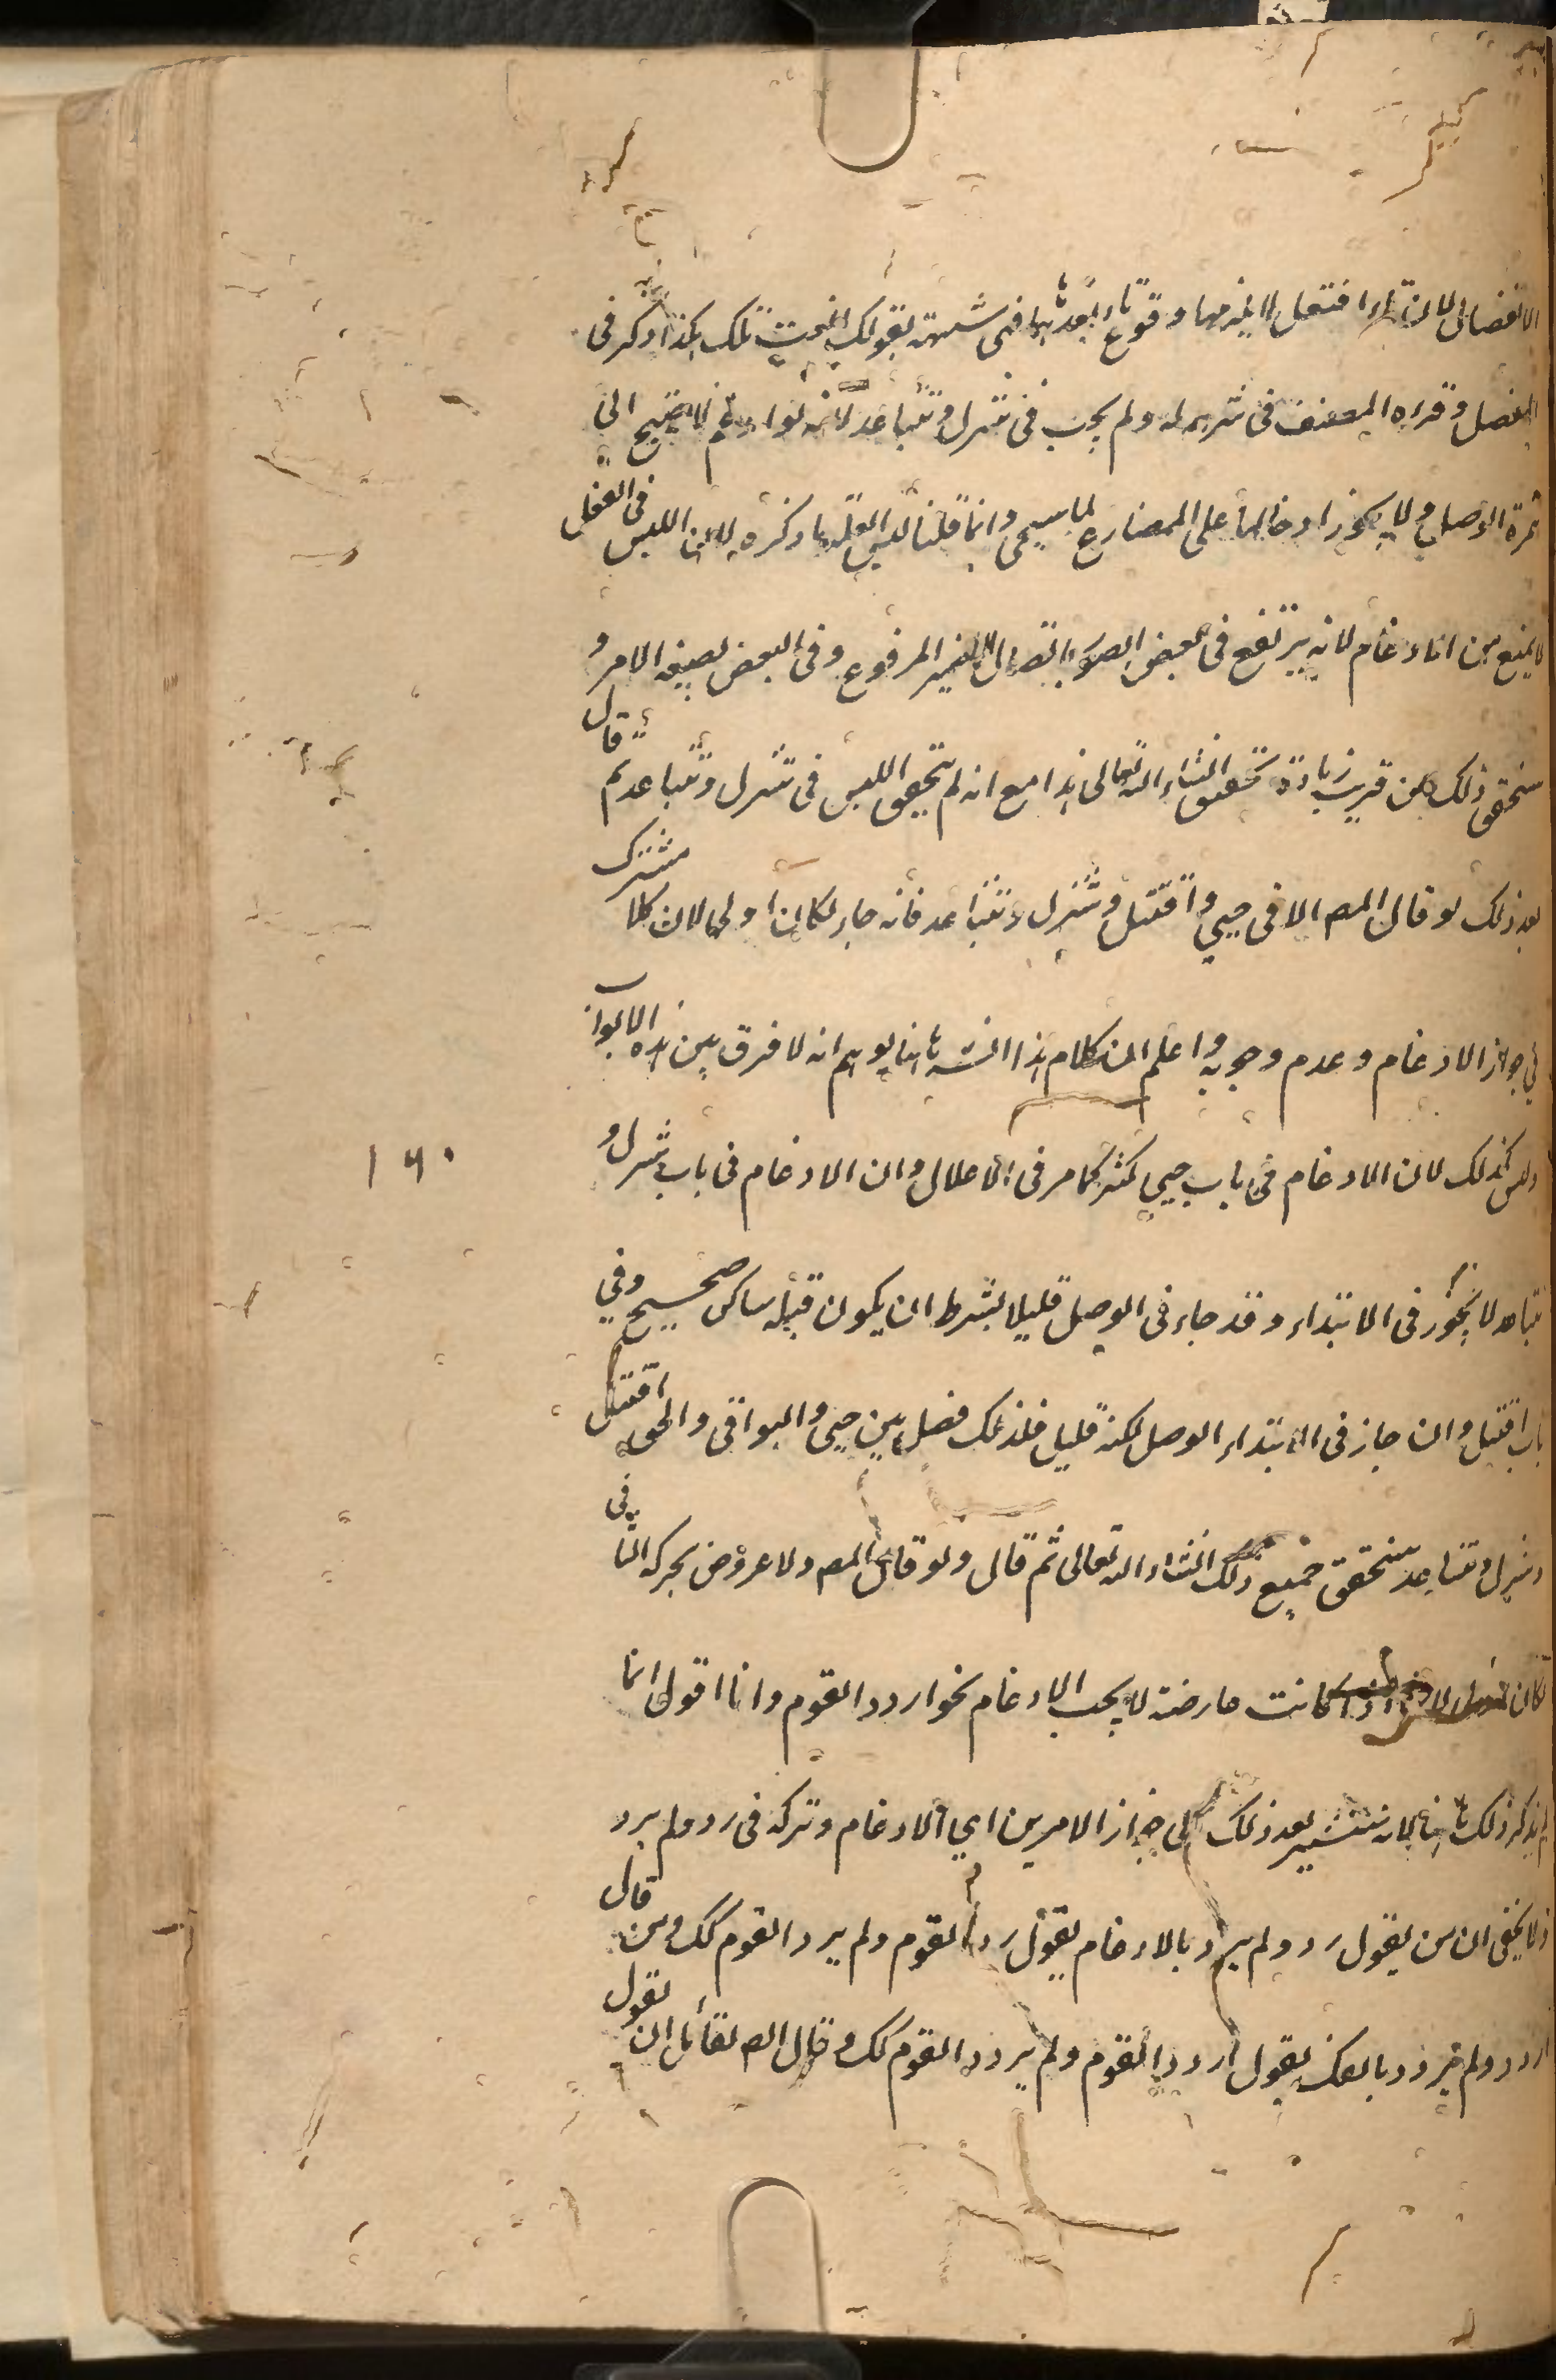 الانفصال لان تاء افتعل لا يلزمها وقوع تاء بعدها فهى شبيهة بقولك انعت تلك هكذا ذكر فى
المفصل وقرره المصنف فى شرحه له ولم يجب فى تتنزل وتتباعد لانه لو ادغم لاحتيج الى
همزة الوصل ولا يجوز ادخالها على المضارع لما سيجى وانما قلنا ليس العلة ما ذكره لان اللبس فى الفعل
لا يمنع من الادغام لانه يرتفع فى بعض الصور باتصال الضمير المرفوع وفى البعض بصيغة الامر و
سنحقق ذلك عن قريب زيادة تحقيق انشاء الله تعالى هذا مع انه لم يتحقق اللبس فى تتنزل وتتباعد ثم قال
بعد ذلك لو قال المص الا فى حيي واقتتل وتتنزل وتتباعد فانه جاء لكان اولى لان كلا مشترك
فى جواز الادغام وعدم وجوبه واعلم ان كلام هذا الش هاهنا يوهم انه لا فرق بين هذه الابواب
وليس كذلك لان الادغام فى باب حيي كثر كما مر فى الاعلال وان الادغام فى باب تتنزل و
تتباعد لا يجوز فى الابتداء وقد جاء فى الوصل قليلا بشرط ان يكون قبله ساكن صحيح وفى
باب اقتتل وان جاز فى الابتداء الوصل لكنه قليل فلذلك فصل بين حيي والبواقى والحق اقتتل
وتتنزل وتتباعد سنحقق جميع ذلك انشاء الله تعالى ثم قال ولو قال المص ولا عروض بحركة الثانى
لكان اولى لانه اذا كانت عارضة لا يجب الادغام نحو اردد القوم وانا اقول انما
لم يذكر ذلك هاهنا لانه سنشير بعد ذلك الى جواز الامرين اى الادغام وتركه فى رد ولم يرد
ولا يخفى ان من يقول رد ولم يرد بالادغام يقول رد القوم ولم يرد القوم كك ومن قال
اردد ولم يردد بالفك يقول اردد القوم ولم يردد القوم كك وقال المص لقائل ان يقول
١٦٠